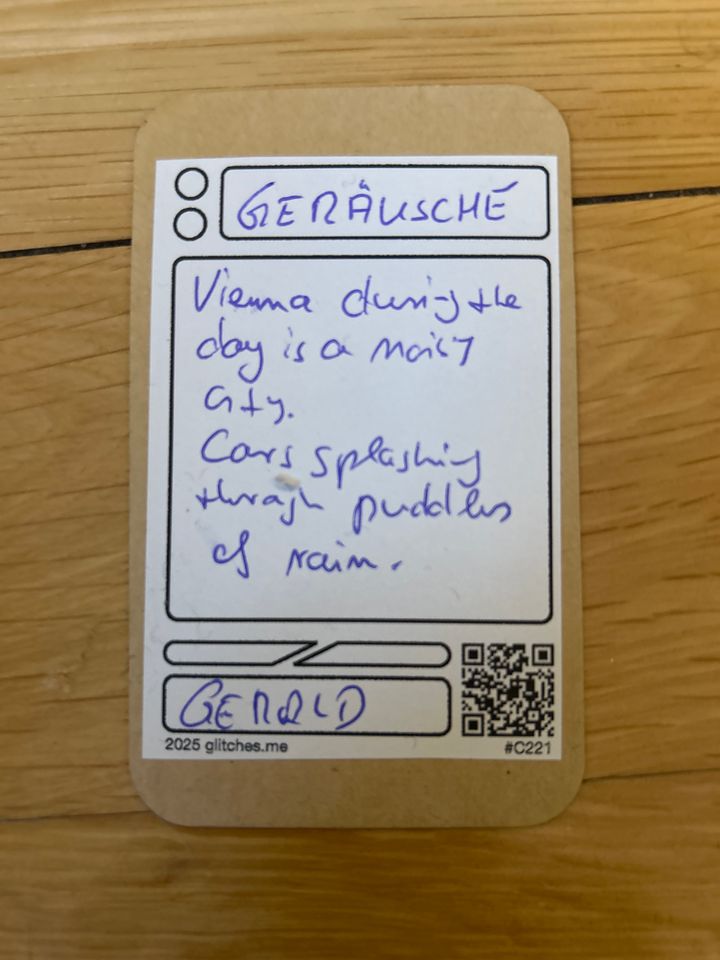 GERÄUSCHE
Vienna during the
day is a noisy
city.
Cars splashing
through puddles
of rain.
GERALD
2025 glitches.me
#C221